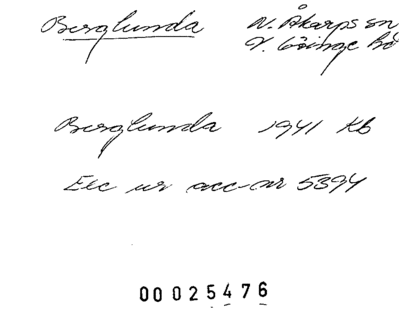 Berglunda N. Åkarps sn
V. Göinge hd
Berglunda 1941 Kb
Exc ur acc-nr 5394
00025476